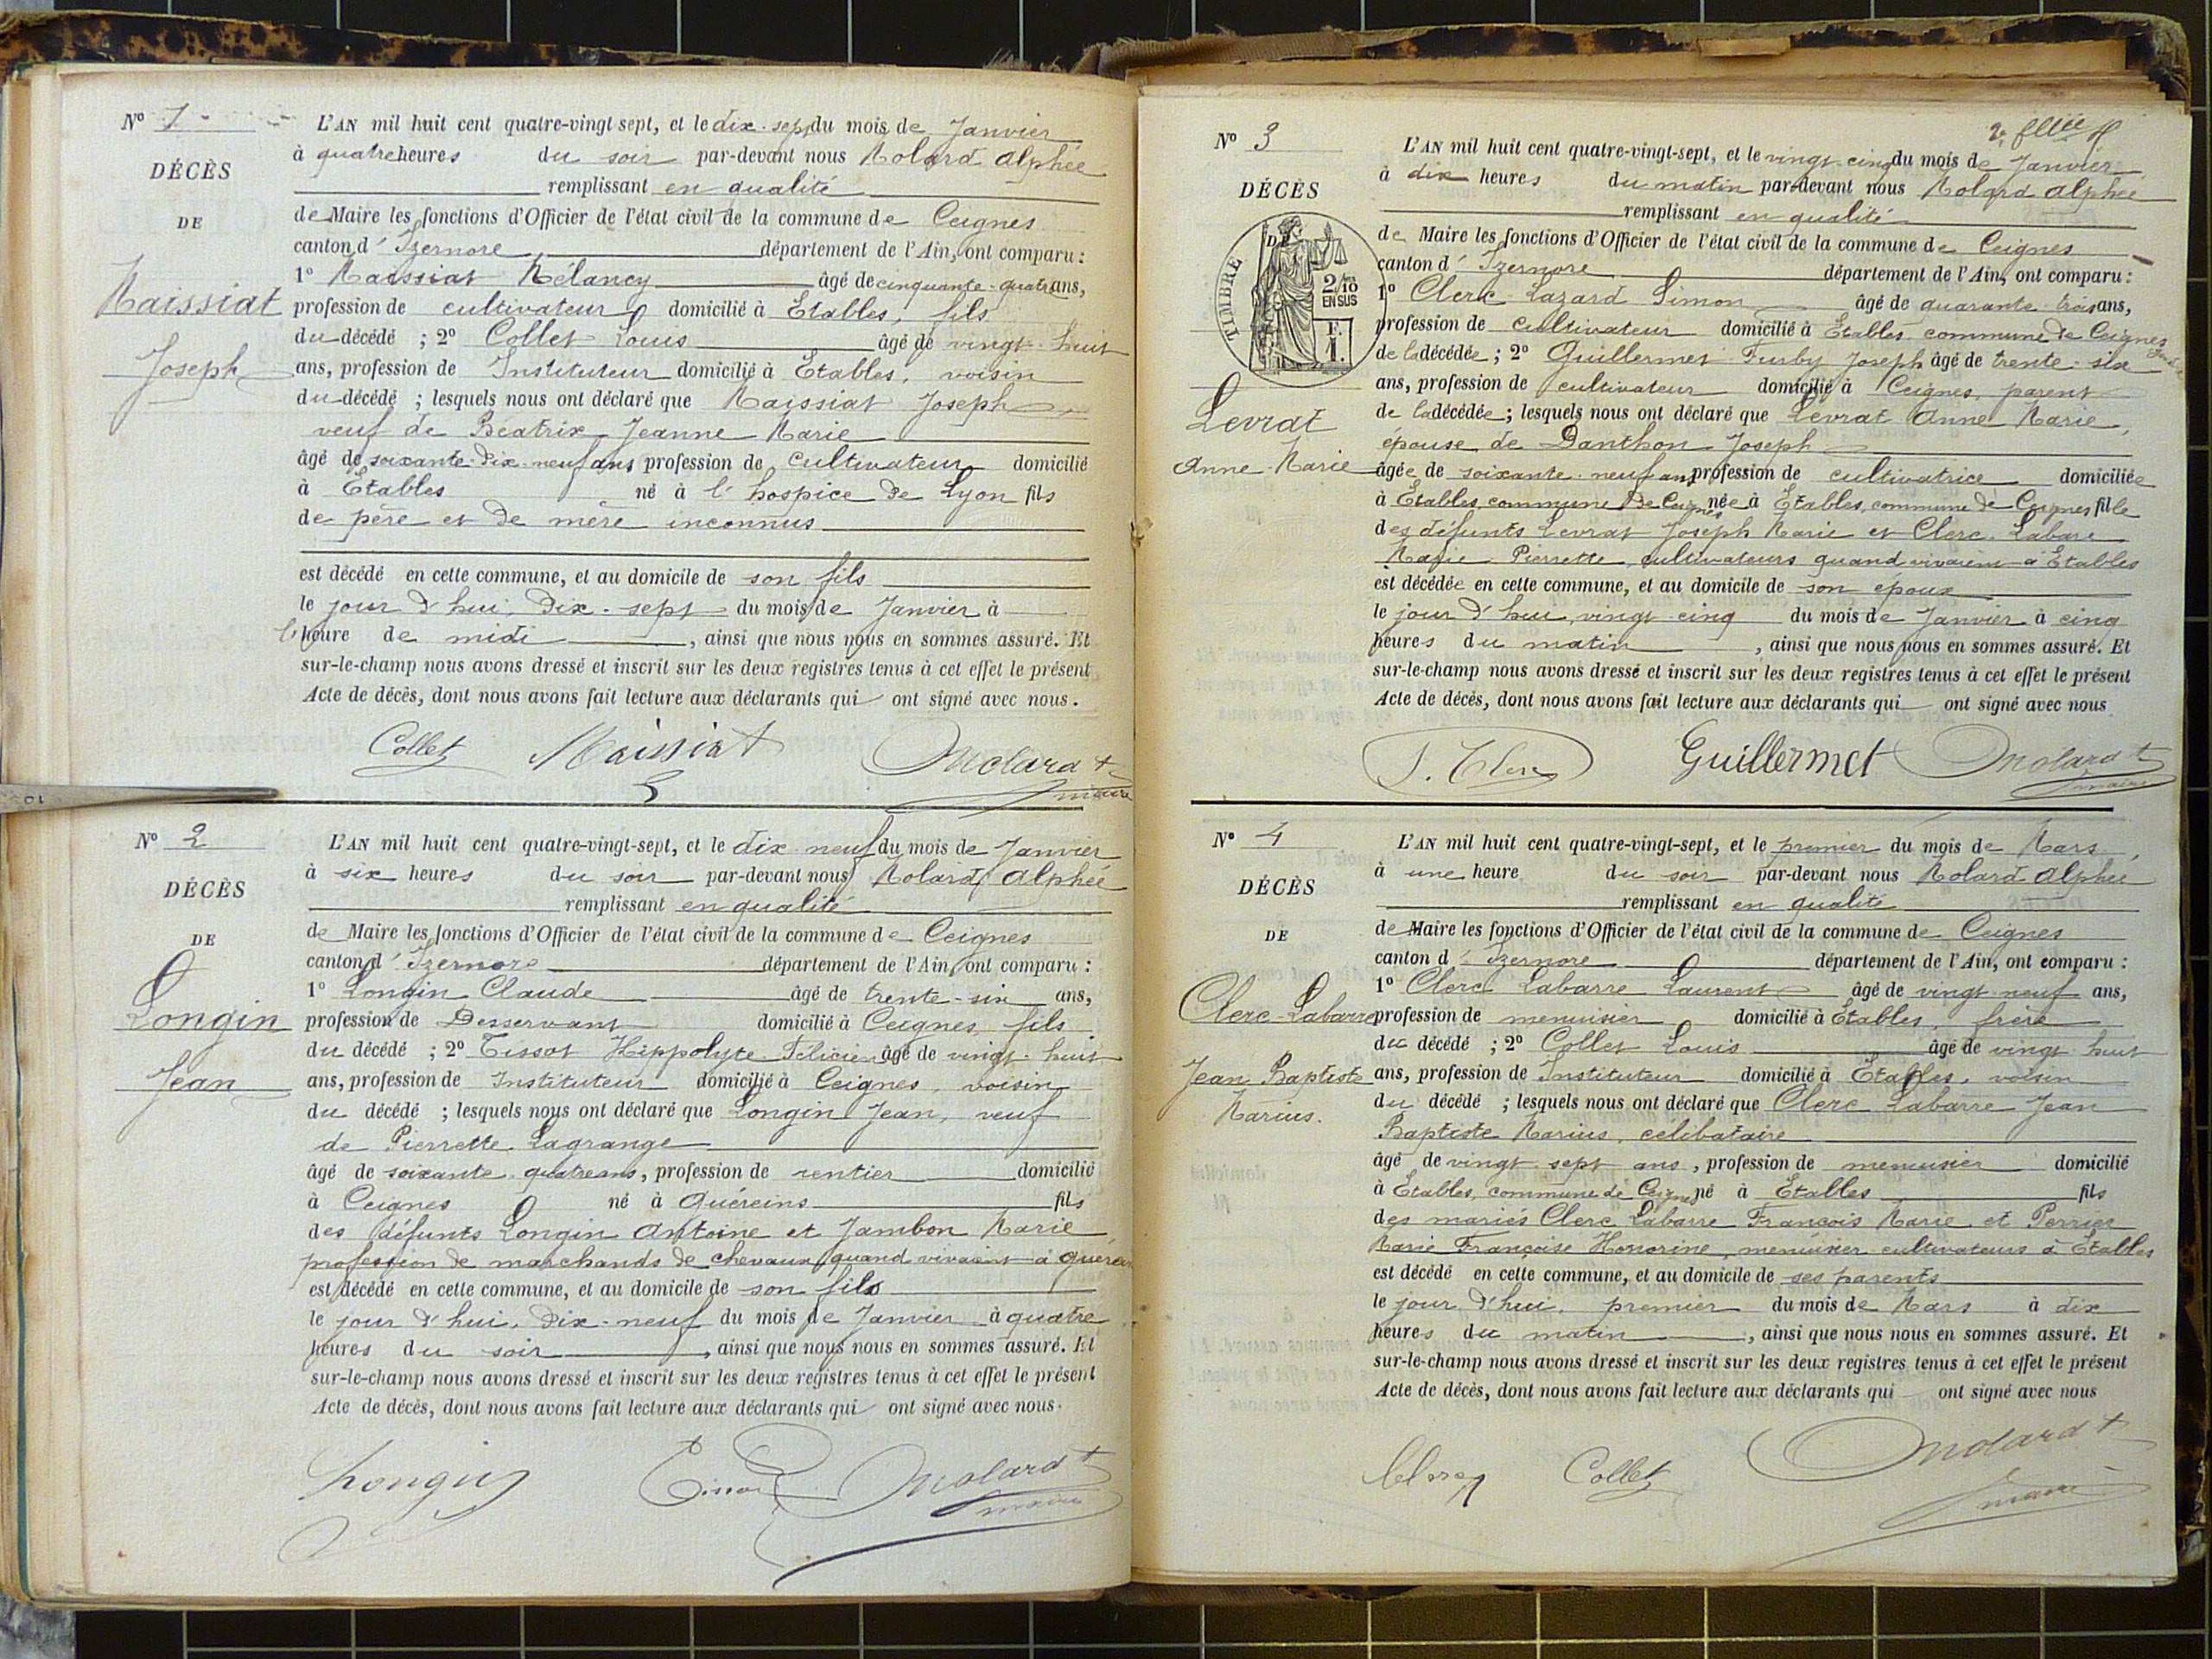 N° 1
DÉCÈS
DE
Maissiat
Joseph
L'AN mil huit cent quatre-vingt sept, et le dix-sept du mois de Janvier
à quatre heures du soir par-devant nous Molard Alphée
remplissant en qualité
de Maire les fonctions d'Officier de l'état civil de la commune de Ceignes
canton d' Izernore département de l'Ain, ont comparu :
1° Maissiat Mélancy âgé de cinquante-quatre ans,
profession de cultivateur domicilié à Etables, fils
du décédé ; 2° Collet Louis âgé de vingt-huit
ans, profession de Instituteur domicilié à Etables, voisin
du décédé ; lesquels nous ont déclaré que Maissiat Joseph
veuf de Béatrix Jeanne Marie
âgé de soixante-dix-neuf ans profession de cultivateur domicilié
à Etables né à l'hospice de Lyon fils
de père et de mère inconnus
est décédé en cette commune, et au domicile de son fils
le jour d'hui, dix-sept du mois de Janvier à
l'heure de midi, ainsi que nous nous en sommes assuré. Et
sur-le-champ nous avons dressé et inscrit sur les deux registres tenus à cet effet le présent
Acte de décès, dont nous avons fait lecture aux déclarants qui ont signé avec nous.
Collet Maissiat Molard
maire
N° 2
DÉCÈS
DE
Longin
Jean
L'AN mil huit cent quatre-vingt-sept, et le dix neuf du mois de Janvier
à six heures du soir par-devant nous Molard Alphée
remplissant en qualité
de Maire les fonctions d'Officier de l'état civil de la commune de Ceignes
canton d' Izernore département de l'Ain, ont comparu :
1° Longin Claude âgé de trente-six ans,
profession de Desservant domicilié à Ceignes, fils
du décédé ; 2° Tissot Hippolyte Félicien âgé de vingt-huit
ans, profession de Instituteur domicilié à Ceignes, voisin
du décédé ; lesquels nous ont déclaré que Longin Jean, veuf
de Pierrette Lagrange
âgé de soixante-quatre ans, profession de rentier domicilié
à Ceignes né à Quéreins fils
des défunts Longin Antoine et Jambon Marie,
profession de marchands de chevaux quand vivaient à
est décédé en cette commune, et au domicile de son fils
le jour d'hui, dix-neuf du mois de Janvier à quatre
heures du soir, ainsi que nous nous en sommes assuré. Et
sur-le-champ nous avons dressé et inscrit sur les deux registres tenus à cet effet le présent
Acte de décès, dont nous avons fait lecture aux déclarants qui ont signé avec nous.
Longin Tissot Molard
maire
N° 3
DÉCÈS
TIMBRE
2/10
EN SUS
F.
1.
Levrat
Anne-Marie
L'AN mil huit cent quatre-vingt-sept, et le vingt-cinq du mois de Janvier
à dix heures du matin par-devant nous Molard Alphée
remplissant en qualité
de Maire les fonctions d'Officier de l'état civil de la commune de Ceignes
canton d' Izernore département de l'Ain, ont comparu :
1° Clerc Lazard Simon âgé de quarante-trois ans,
profession de cultivateur domicilié à Etables, commune de Ceignes
de la décédée ; 2° Guillermet Furby Joseph âgé de trente-six
ans, profession de cultivateur domicilié à Ceignes, parent
de la décédée ; lesquels nous ont déclaré que Levrat Anne Marie,
épouse de Danthon Joseph
âgée de soixante-neuf ans profession de cultivatrice domiciliée
à Etables, commune de Ceignes née à Etables, commune de Ceignes fille
des défunts Levrat Joseph Marie et Clerc-Labare
Marie Pierrette, cultivateurs quand vivaient à Etables
est décédée en cette commune, et au domicile de son époux
le jour d'hui, vingt-cinq du mois de Janvier à cinq
heures du matin, ainsi que nous nous en sommes assuré. Et
sur-le-champ nous avons dressé et inscrit sur les deux registres tenus à cet effet le présent
Acte de décès, dont nous avons fait lecture aux déclarants qui ont signé avec nous
S. Clerc Guillermet Molard
maire
N° 4
DÉCÈS
DE
Clerc-Labarre
Jean Baptiste
Marius.
L'AN mil huit cent quatre-vingt-sept, et le premier du mois de Mars,
à une heure du soir par-devant nous Molard Alphée
remplissant en qualité
de Maire les fonctions d'Officier de l'état civil de la commune de Ceignes
canton d' Izernore département de l'Ain, ont comparu :
1° Clerc Labarre Laurent âgé de vingt-neuf ans,
profession de menuisier domicilié à Etables, frère
du décédé ; 2° Collet Louis âgé de vingt huit
ans, profession de Instituteur domicilié à Etables, voisin
du décédé ; lesquels nous ont déclaré que Clerc Labarre Jean
Baptiste Marius, célibataire
âgé de vingt-sept ans, profession de menuisier domicilié
à Etables, commune de Ceignes né à Etables fils
des mariés Clerc Labarre François Marie et Perrier
Marie Françoise Honorine, menuisier-cultivateurs à Etables
est décédé en cette commune, et au domicile de ses parents
le jour d'hui, premier du mois de Mars à dix
heures du matin, ainsi que nous nous en sommes assuré. Et
sur-le-champ nous avons dressé et inscrit sur les deux registres tenus à cet effet le présent
Acte de décès, dont nous avons fait lecture aux déclarants qui ont signé avec nous
Clerc Collet Molard
maire